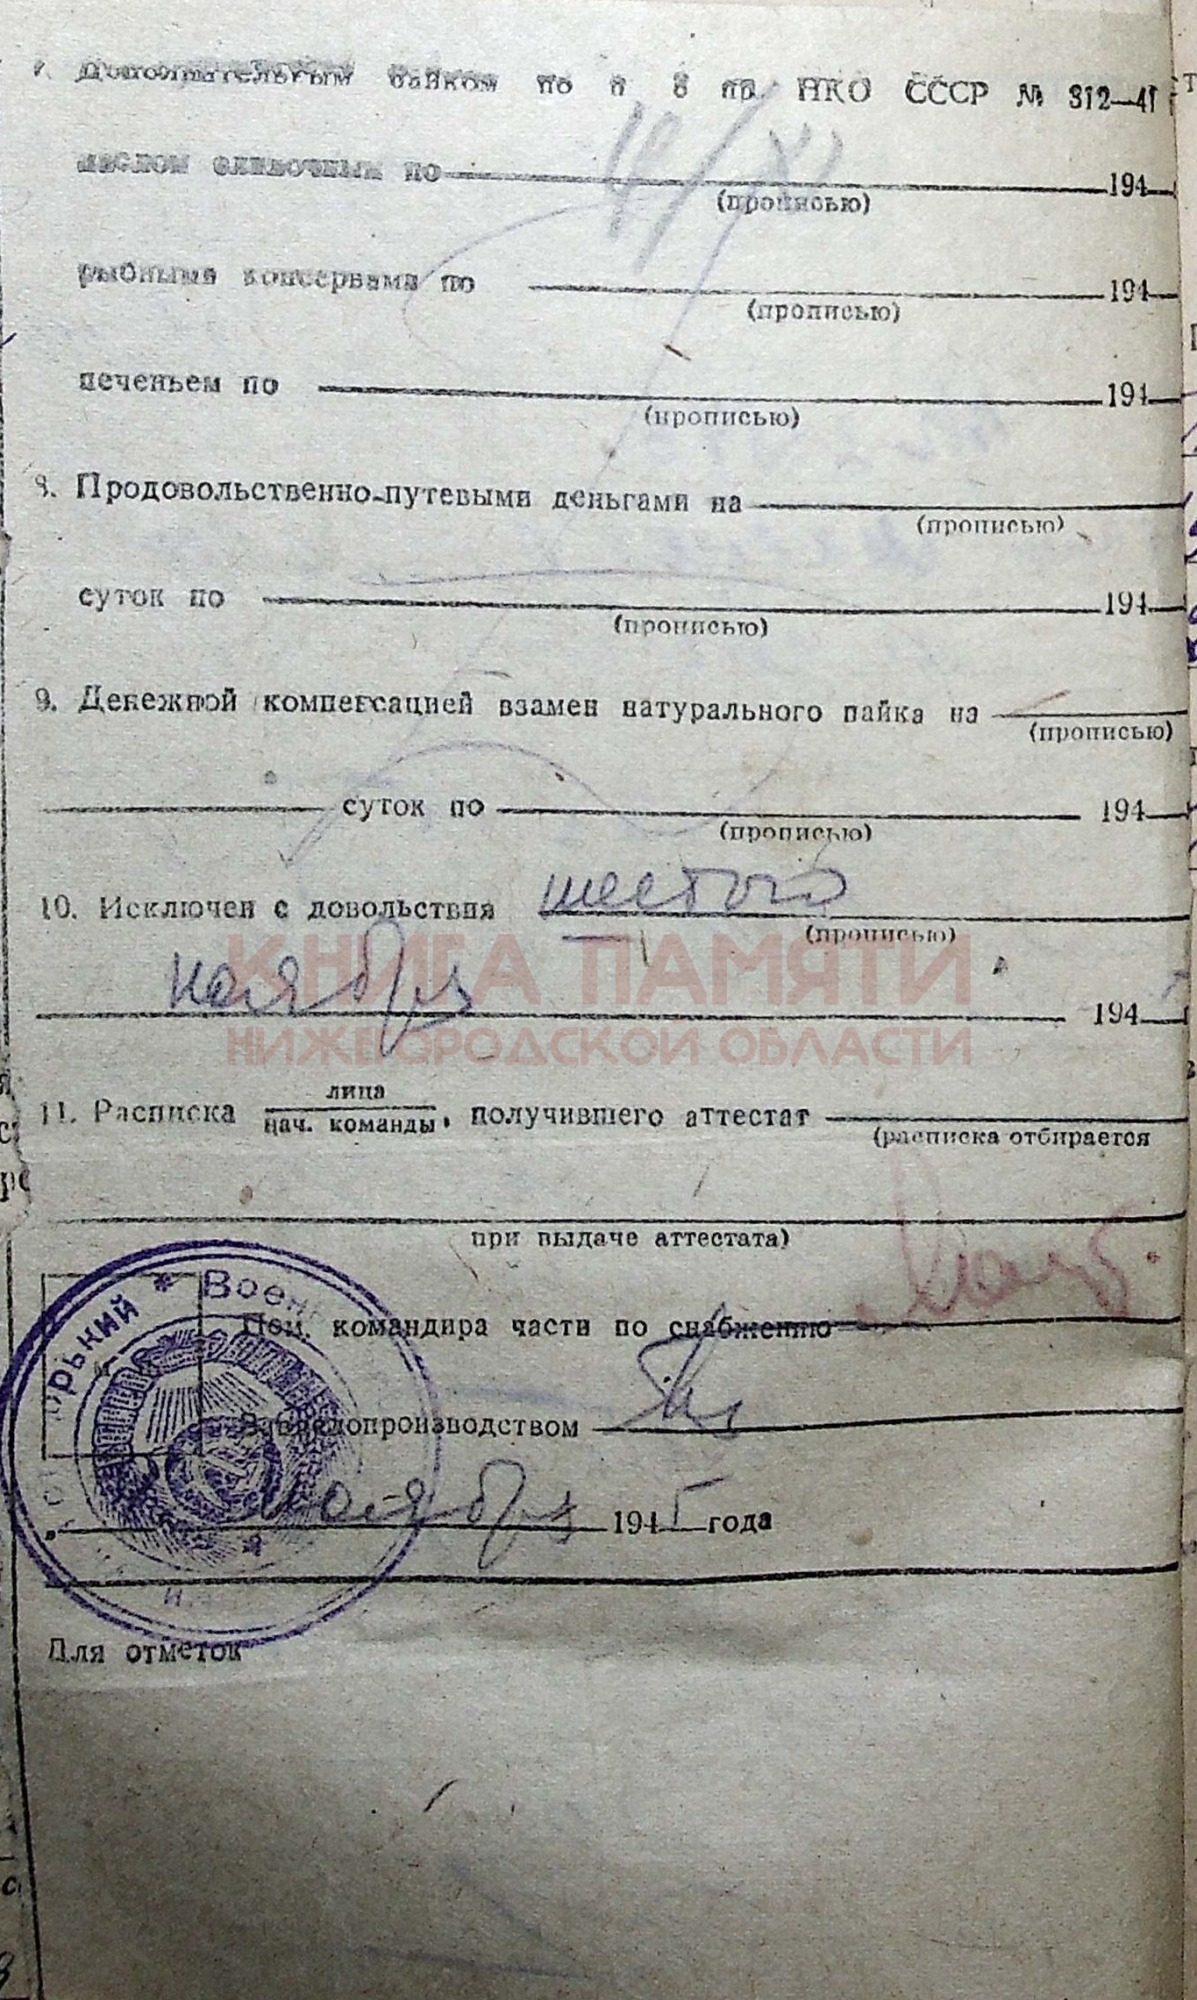 7. Дополнительным пайком по п 3 пр. НКО СССР № 312—41
маслом сливочным по 194
(прописью)
рыбными консервами по 194
(прописью)
печеньем по 194
(прописью)
8. Продовольственно-путевыми деньгами на
(прописью)
суток по 194
(прописью)
9. Денежной компенсацией взамен натурального пайка на
(прописью)
суток по 194
(прописью)
10. Исключен с довольствия шестого
(прописью)
КНИГА ПАМЯТИ
ноября 194
НИЖЕГОРОДСКОЙ ОБЛАСТИ
лица
11. Расписка нач. команды, получившего аттестат
(расписка отбирается
при выдаче аттестата)
Пом. командира части по снабжению
Зав. делопроизводством
ноября 1945 года
Для отметок